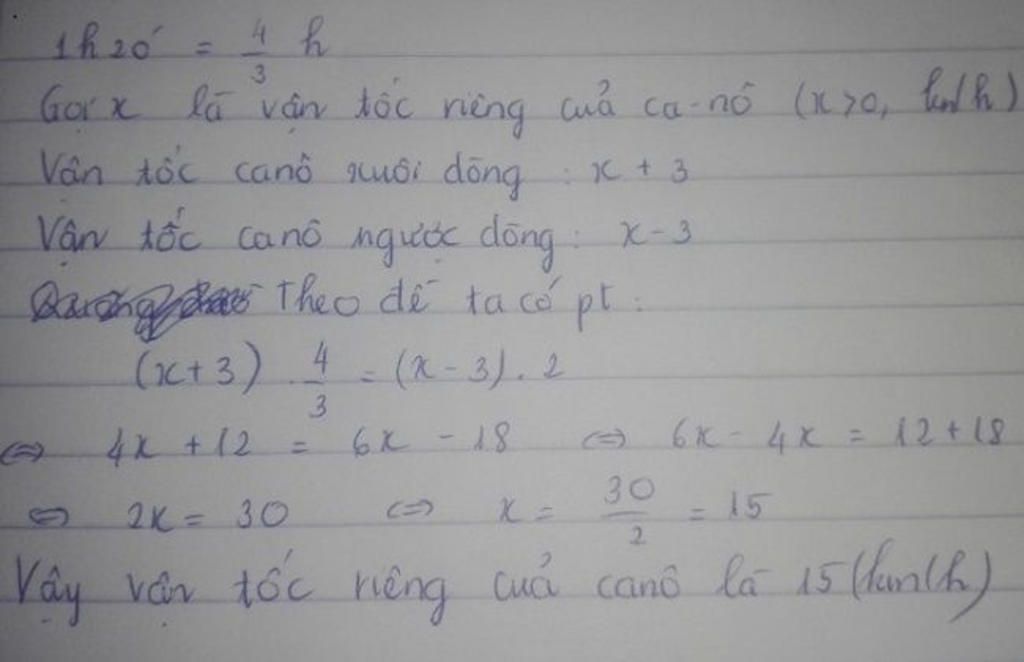 1h20' = 4/3 h
Gọi x là vận tốc riêng cuả ca-nô (x>0, km/h)
Vận tốc canô xuôi dòng : x + 3
Vận tốc canô ngược dòng : x - 3
Theo đề ta có pt :
(x+3) . 4/3 = (x-3) . 2
⇔ 4x + 12 = 6x - 18 ⇔ 6x - 4x = 12 + 18
⇔ 2x = 30 ⇔ x = 30/2 = 15
Vậy vận tốc riêng cuả canô là 15 (km/h)